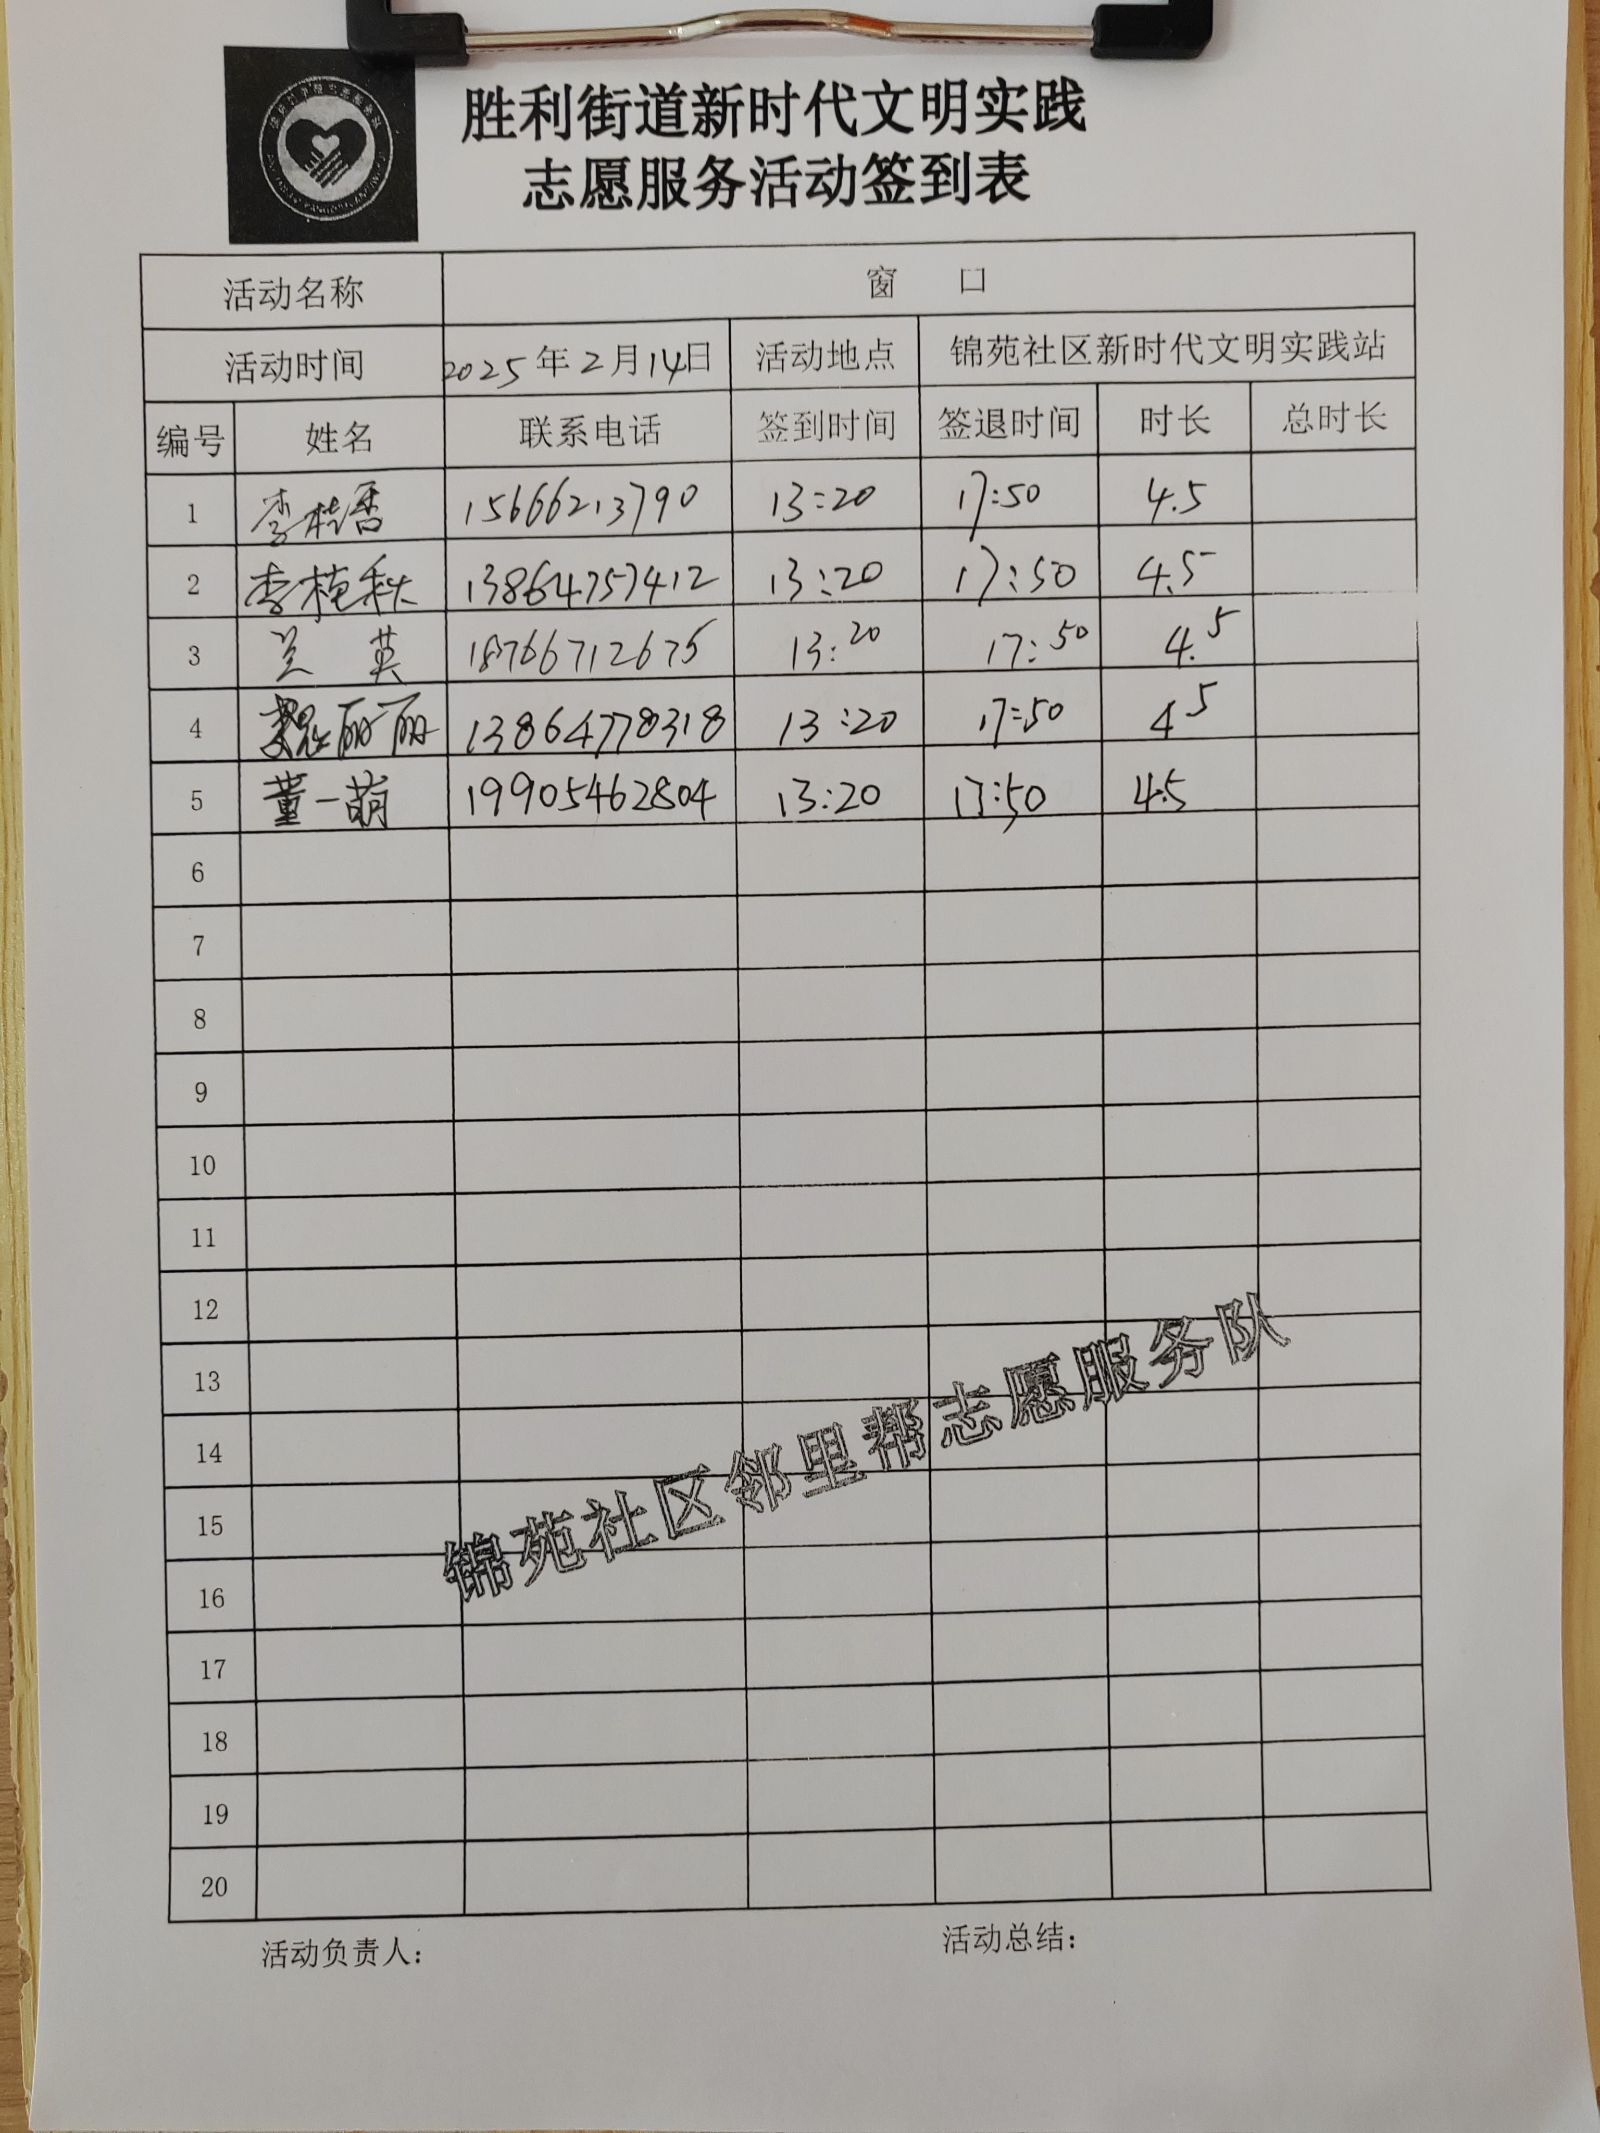 胜利街道新时代文明实践
志愿服务活动签到表
活动名称 窗 口
活动时间 2025年2月14日 活动地点 锦苑社区新时代文明实践站
编号 姓名 联系电话 签到时间 签退时间 时长 总时长
1 李桂香 15666213790 13:20 17:50 4.5
2 李 秋 13864757412 13:20 17:50 4.5
3 兰 英 18766712675 13:20 17:50 4.5
4 魏丽丽 13864778318 13:20 17:50 4 5
5 董一萌 19905462804 13:20 17:50 4.5
6
7
8
9
10
11
12
13
14
15
16
17
18
19
20
锦苑社区邻里帮志愿服务队
活动负责人: 活动总结: